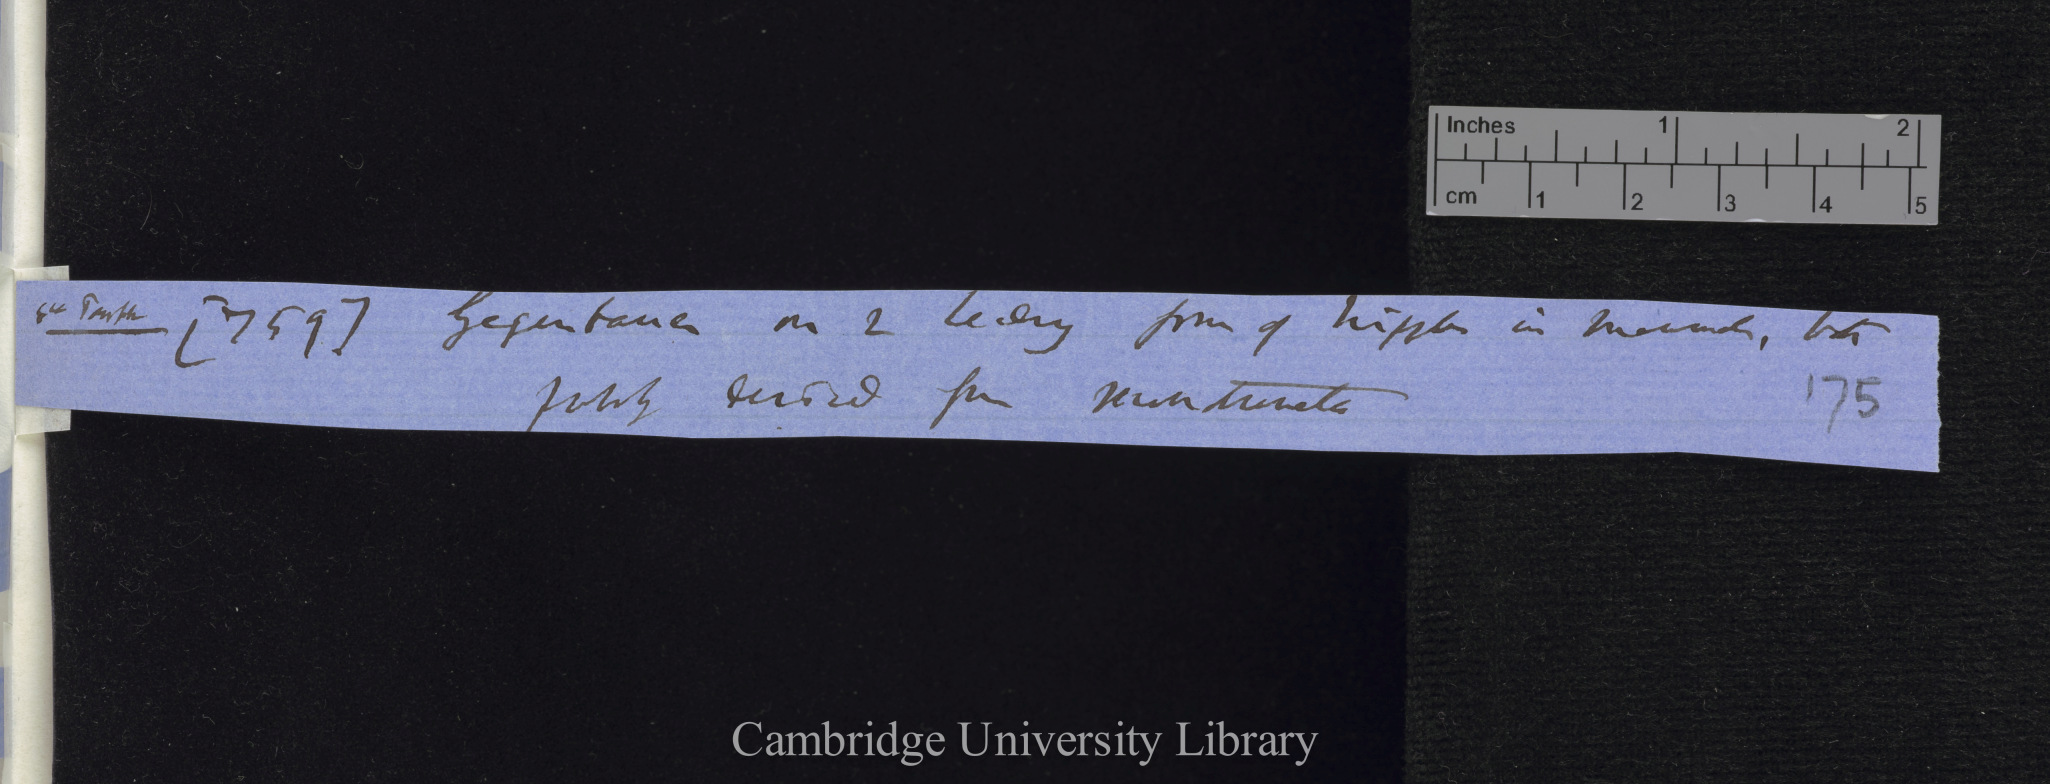 Inches 1 2
cm 1 2 3 4 5
[759] Gegenbauer on 2 leading forms of nipples in mammals, both
probably derived from monotremata
175
Cambridge University Library